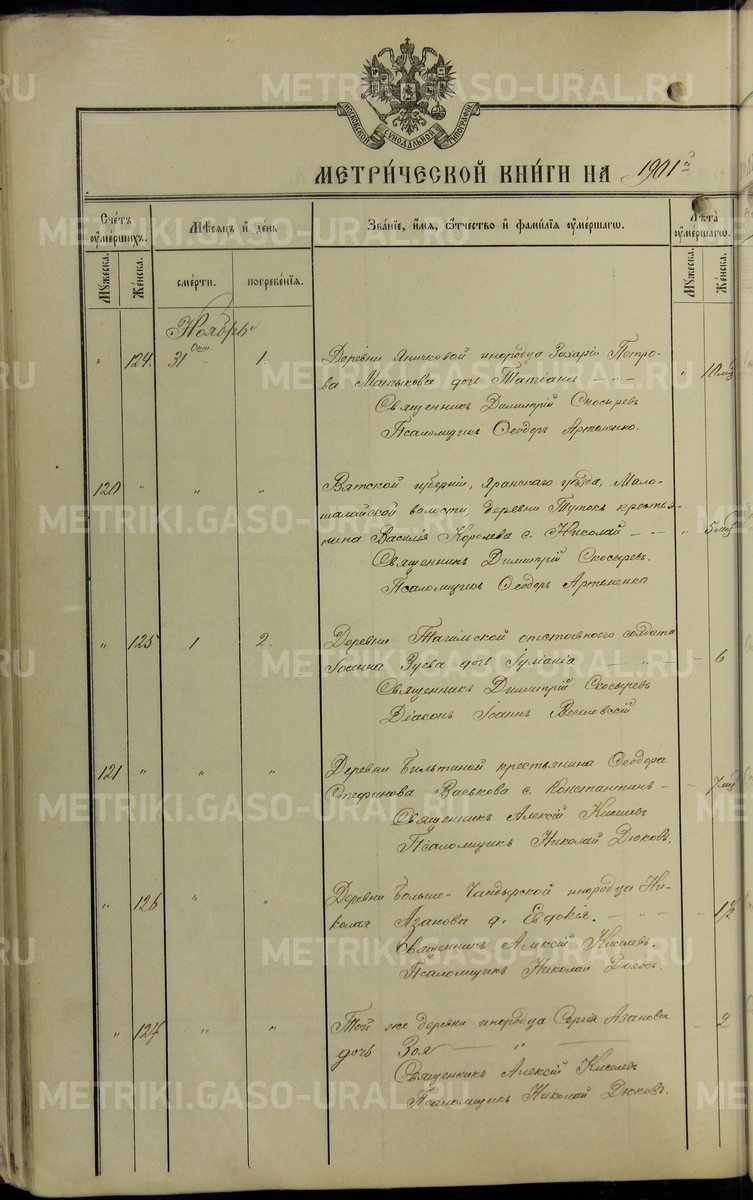 МОСКОВСКОЙ СУНОДАЛЬНОЙ ТИПОГРАФІИ
МЕТРИ́ЧЕСКОЙ КНИ́ГИ НА 1901 г.
Сче́тъ оуме́ршихъ.
Мꙋжеска.
Же́нска.
Мѣ́сяцъ и҆ де́нь
сме́рти.
погребе́нїя.
Зва́нїе, и҆́мя, ѻ҆́тчество и҆ фами́лїя оу҆ме́ршагѡ.
Лѣ́та оуме́ршагѡ.
Мꙋжеска.
Же́нска.
Ноябрь
" 124. Окт. 31 1. Деревни Яничковой инородца Захарія Петро-
ва Матыкова дочь Татіана — " — " 10 мц
Священникъ Димитрій Скосыревъ
Псаломщикъ Ѳеодоръ Артеменко.
120 " " " Вятской губерніи, Яранскаго уѣзда, Мало-
шалайской волости, деревни Тутокъ крестья-
нина Василія Королева с. Николай — " 5 мц
Священникъ Димитрій Скосыревъ.
Псаломщикъ Ѳеодоръ Артеменко
" 125 1 2. Деревни Тагильской отставного солдата
Іоанна Зуева дочь Іуліанія — " — 6
Священникъ Димитрій Скосыревъ
Діаконъ Іоаннъ
121 " " " Деревни крестьянина Ѳеодора
Стефанова Васькова с. Константинъ — 7 мц
Священникъ Алексій Киселевъ
Псаломщикъ Николай Дюковъ.
" 126 " " Деревни Больше-Чандырской инородца Ни-
колая Азанова д. Евдокія. — " — 1½
Священникъ Алексій Киселевъ.
Псаломщикъ Николай Дюковъ.
" 127 " " Той же деревни инородца Сергія Азанова
дочь Зоя — " — 2
Священникъ Алексій Киселевъ
Псаломщикъ Николай Дюковъ.
METRIKI.GASO-URAL.RU